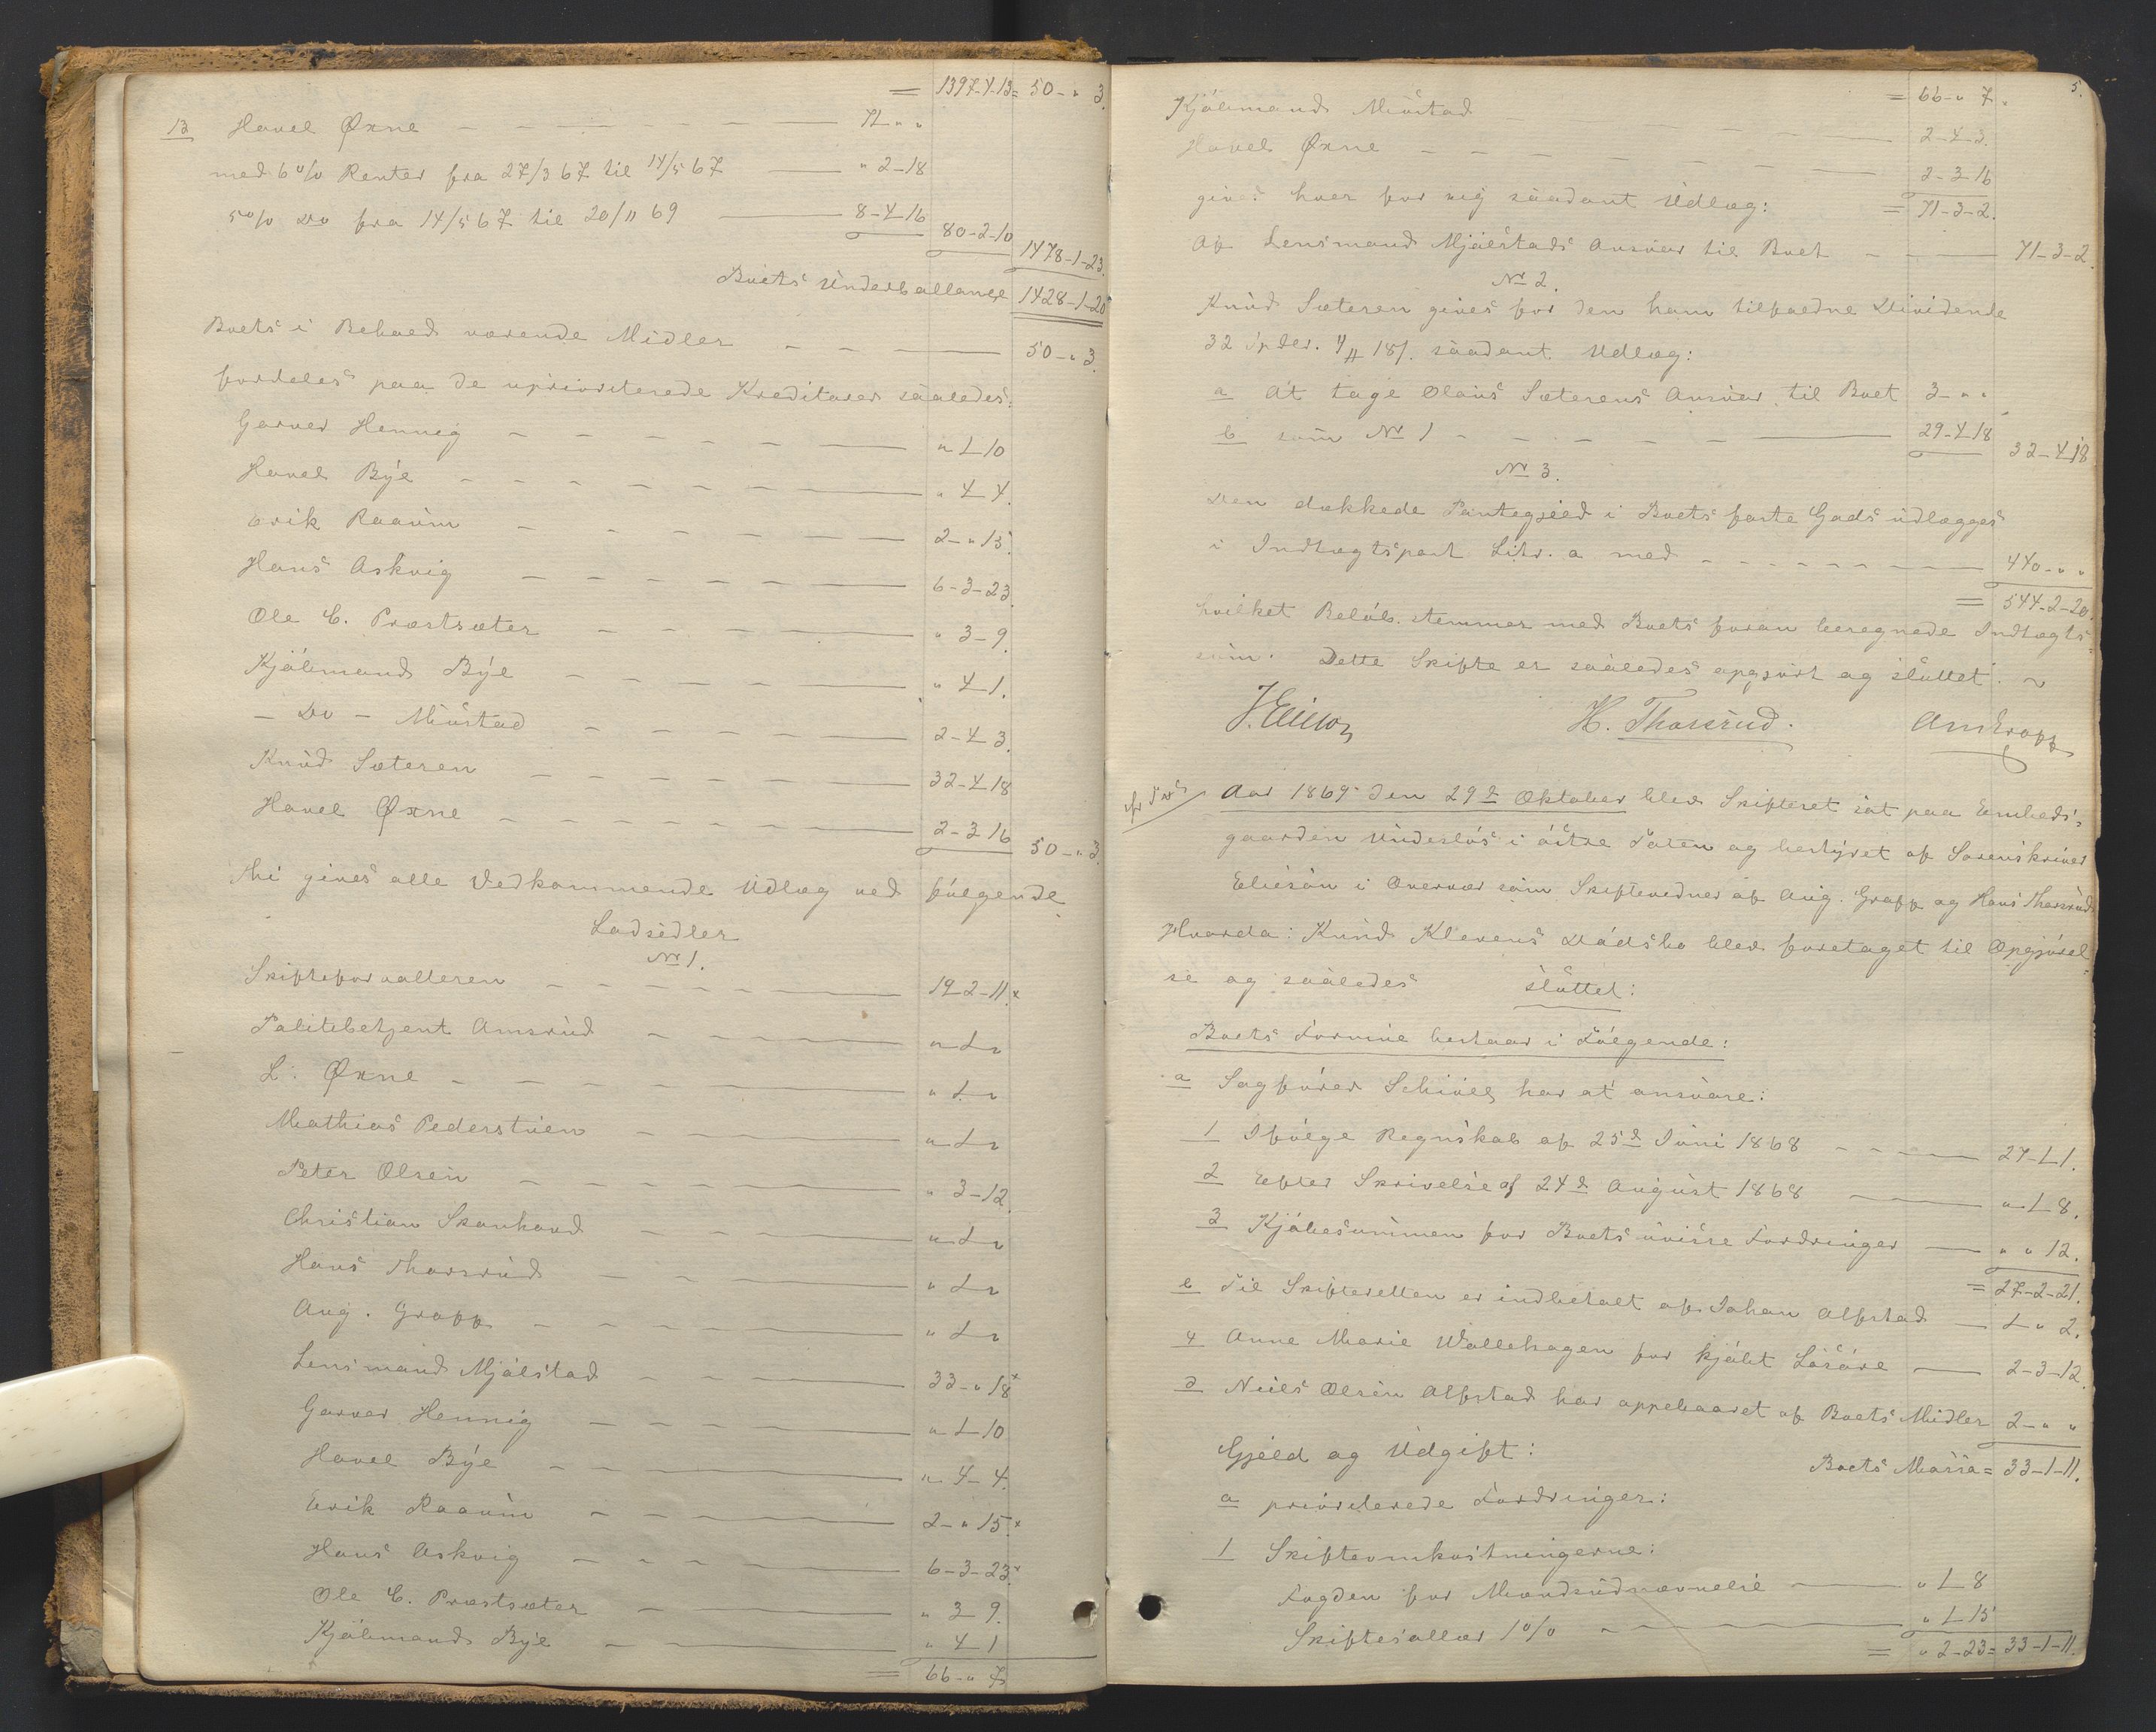 = 1397-4-13= 50-" 3.
13 Havel Øxne — 71 " "
med 6% Renter fra 27/3 67 til 14/5 67 — " 2-18
5% Do fra 14/5 67 til 20/11 69 — 8-4-16 80-2-10 1478-1-23.
Boets Underballance 1428-1-20
Boets i Behold værende Midler — 50-" 3.
fordeles paa de uprioriterede Kreditorer saaledes:
Garver Hennig — " 1-10
Havel Bye — " 4-4.
Erik Raaum — 2-" 15.
Hans Askvig — 6-3-23.
Ole C. Præstsæter — " 3-9.
Kjøbmand Bye — " 4-1.
- Do - Mustad — 2-4-3.
Knud Sæteren — 32-4-18
Havel Øxne — 2-3-16 50-" 3.
Thi gives alle Vedkommende Udlæg ved følgende
Lodsedler
No 1.
Skifteforvalteren — 19-2-11.x
Politibetjent Amsrud — " 1- "
L. Øxne — " 1- "
Mathias Pederstuen — " 1- "
Peter Olsen — " 3-12.
Christian Skanhoud — " 1- "
Hans Thorsrud — " 1- "
Aug. Gropp — " 1- "
Lensmand Mjølstad — 33-" 18x
Garver Hennig — " 1-10
Havel Bye — " 4-4.
Erik Raaum — 2-" 15.x
Hans Askvig — 6-3-23.x
Ole C. Præstsæter — " 3 9.
Kjøbmand Bye — " 4-1
= 66-" 7
5.
= 66-" 7.
Kjøbmand Mustad — 2-4-3.
Havel Øxne — 2-3-16
gives hver for sig saadant Udlæg: = 71-3-2.
Af Lensmand Mjølstads Ansvar til Boet — 71-3-2.
No 2.
Knud Sæteren gives for den ham tilfaldne Dividende
32 Spdlr. 4 # 18 s. saadant Udlæg:
a At tage Olaus Sæterens Ansvar til Boet 3-" "
b som No 1 — 29-4-18 32-4-18
No 3.
Den dækkede Pantegjeld i Boets faste Gods udlægges
i Indtægtspost Litr. a med — 440-" "
= 544-2-20.
hvilket Beløb stemmer med Boets foran beregnede Indtægts=
sum. Dette Skifte er saaledes opgjort og sluttet.
H. Thorsrud. Aug Gropp
Aar 1869 den 29de Oktober blev Skifteret sat paa Embeds=
gaarden Underløs i østre Toten og bestyret af Sorenskriver
Elieson i Overvær som Skiftevidner af Aug. Gropp og Hans Thorsrud
Hvorda: Knud Klevens Dødsbo blev foretaget til Opgjørel=
se og saaledes sluttet:
Boets Formue bestaar i Følgende:
a Sagfører Schiøll har at ansvare:
1 Ifølge Regnskab af 25de Juni 1868 — 27-1-1.
2 Efter Skrivelse af 24de August 1868 — " 1-8.
3 Kjøbesummen for Boets uvisse Fordringer — " " 12.
= 27-2-21.
b Til Skifteretten er indbetalt af Johan Alfstad — 1 " 2.
4 Anne Marie Wollehagen for kjøbt Løsøre — 2-3-12.
d Niels Olsen Alfstad har oppebaaret af Boets Midler 2-" "
Boets Massa= 33-1-11.
Gjeld og Udgift:
a prioriterede Fordringer:
1 Skifteomkostningerne:
Fogden for Mændsudnævnelse — " 1-8
Skiftesallær 1% — " 1-15
= " 2-23= 33-1-11.